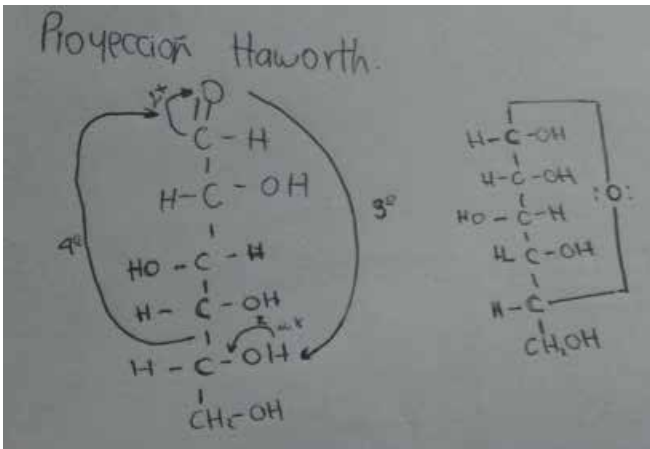 Proyección Haworth.
1º
O
C - H
H - C - OH
3º
4º
HO - C - H
H - C - OH
H - C - OH
CH₂-OH
H - C - OH
H - C - OH
:O:
HO - C - H
H C - OH
H - C
CH₂OH